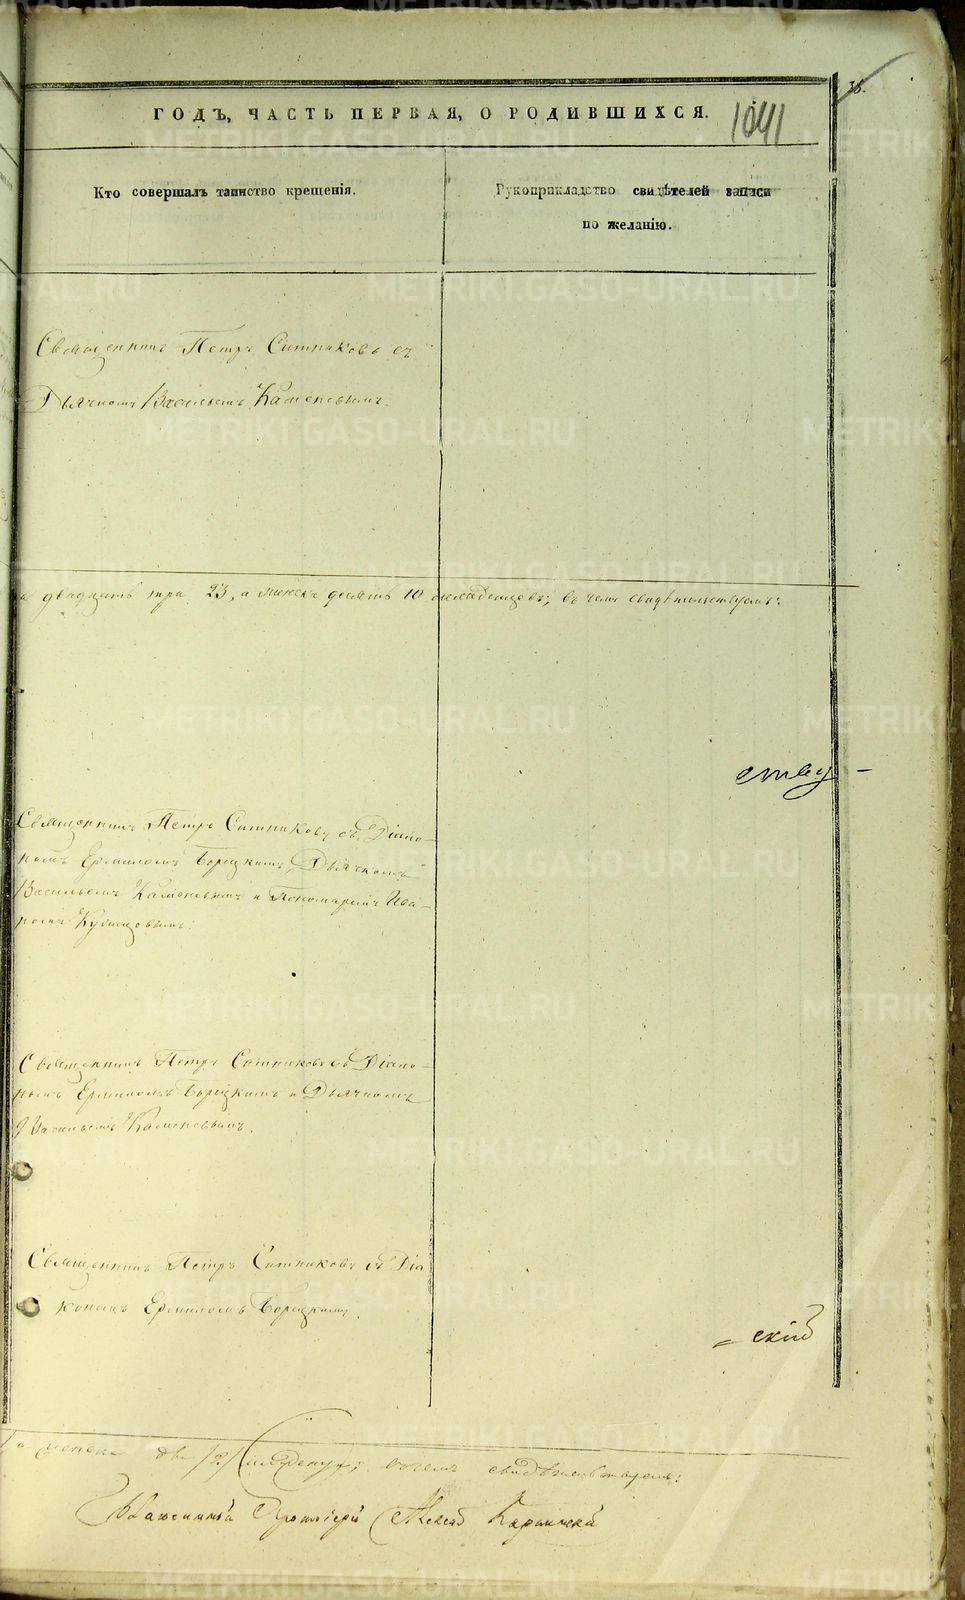 38.
ГОДЪ, ЧАСТЬ ПЕРВАЯ, О РОДИВШИХСЯ.
1041
Кто совершалъ таинство крещенія.
Рукоприкладство свидѣтелей записи
по желанію.
Священникъ Петръ Ситниковъ съ
Дьячкомъ Васильемъ Каменевымъ.
двадцать три 23, а женска десять 10 младенцевъ; въ чемъ свидѣтельствуемъ:
ству-
Священникъ Петръ Ситниковъ съ Діако-
номъ Ермиломъ Борецкимъ, Дьячкомъ
Васильемъ Каменевымъ и Пономаремъ Ива-
номъ Кузнецовымъ.
Священникъ Петръ Ситниковъ съ Діако-
номъ Ермиломъ Борецкимъ и Дьячкомъ
Васильемъ Каменевымъ.
Священникъ Петръ Ситниковъ съ Діа
кономъ Ермиломъ Борецкимъ.
= скій
а женска две /2/ въ чемъ свидѣтельствуемъ:
Протоіерей
METRIKI.GASO-URAL.RU